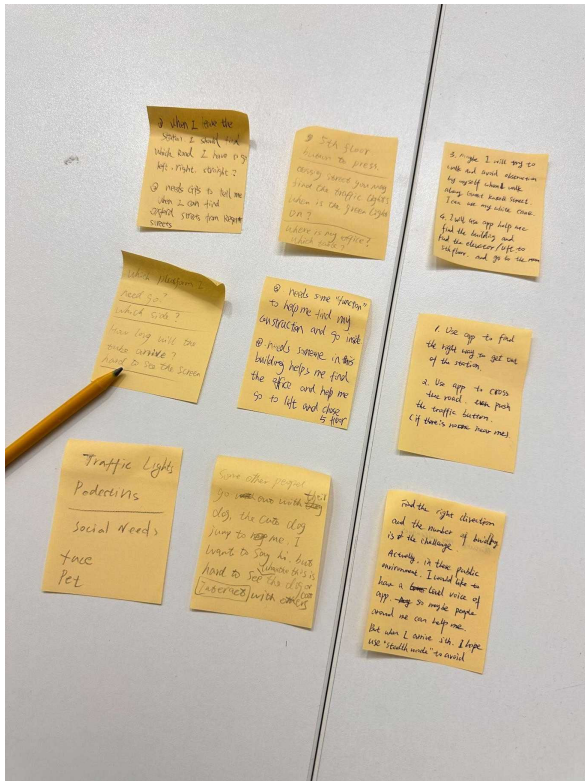 ② when I leave the
station. I should find
which Road I have to go
left, right, straight?
② needs GPS to tell me
when I can find
streets from
streets
5th floor
button to press.
since you may
find the traffic lights
when is the green light
on?
where is my office?
which
3. Maybe I will try to
walk and avoid obstruction
by myself when I walk
along street.
I can use my white cane.
4. I will use app help me
find the building and
find the elevator/lift to
5th floor, and go to the room
Which platform?
need go?
which side?
how long will the
tube arrive?
hard to see the screen
② needs some "function"
to help me find my
construction and go inside
② needs someone in this
building helps me find
the office and help me
go to lift and
5 floor
1. Use app to find
the right way to get out
of the station
2. Use app to cross
the road. push
the traffic button.
(if there's no hear me)
Traffic Lights
Social Needs
face
Pet
Some other people
go out with
dog, the cute dog
jump to me. I
want to say hi, but
this is
hard to see the dog
with
Find the right direction
and the number of building
is the challenge.
Actually, in these public
environment, I would like to
have a level voice of
app. so maybe people
around me can help me.
But when I arrive 5th. I hope
use "stealth mode" to avoid